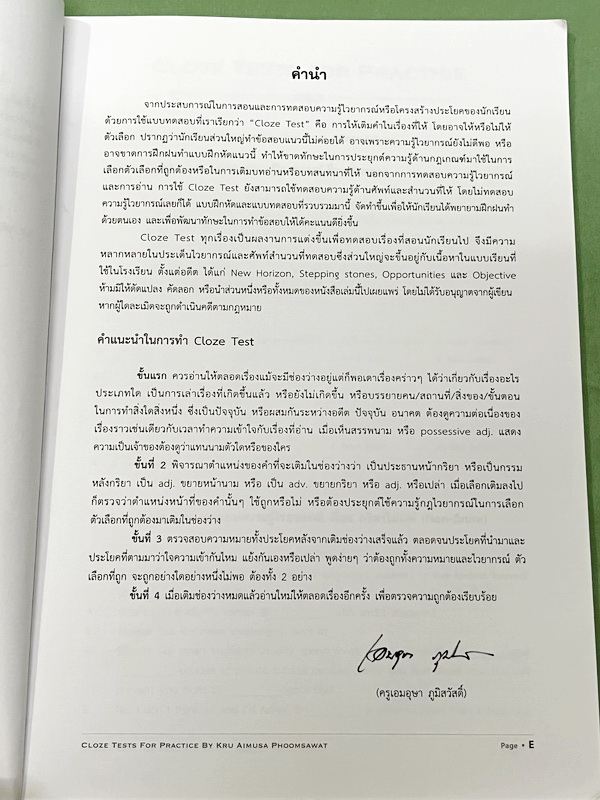 คำนำ
จากประสบการณ์ในการสอนและการทดสอบความรู้ไวยากรณ์หรือโครงสร้างประโยชของนักเรียน
ด้วยการใช้แบบทดสอบที่เราเรียกว่า “Cloze Test” คือ การให้เติมคำในเรื่องที่ให้ โดยอาจให้หรือไม่ให้
ตัวเลือก ปรากฏว่านักเรียนส่วนใหญ่ทำข้อสอบแนวนี้ไม่ค่อยได้ อาจเพราะความรู้ไวยากรณ์ยังไม่ดีพอ หรือ
อาจขาดการฝึกฝนทำแบบฝึกหัดแนวนี้ ทำให้ขาดทักษะในการประยุกต์ความรู้ด้านกฎเกณฑ์มาใช้ในการ
เลือกตัวเลือกที่ถูกต้องหรือในการเติมบทอ่านหรือบทสนทนาที่ให้ นอกจากการทดสอบความรู้ไวยากรณ์
และการอ่าน การใช้ Cloze Test ยังสามารถใช้ทดสอบความรู้ด้านศัพท์และสำนวนที่ให้ โดยไม่ทดสอบ
ความรู้ไวยากรณ์เลยก็ได้ แบบฝึกหัดและแบบทดสอบที่รวบรวมมานี้ จัดทำขึ้นเพื่อให้นักเรียนได้พยายามฝึกฝนทำ
ด้วยตนเอง และเพื่อพัฒนาทักษะในการทำข้อสอบให้ได้คะแนนดียิ่งขึ้น
Cloze Test ทุกเรื่องเป็นผลงานการแต่งขึ้นเพื่อทดสอบเรื่องที่สอนนักเรียนไป จึงมีความ
หลากหลายในประเด็นไวยากรณ์และศัพท์สำนวนที่ทดสอบซึ่งส่วนใหญ่จะขึ้นอยู่กับเนื้อหาในแบบเรียนที่
ใช้ในโรงเรียน ตั้งแต่อดีต ได้แก่ New Horizon, Stepping stones, Opportunities และ Objective
ห้ามมิให้ดัดแปลง คัดลอก หรือนำส่วนหนึ่งหรือทั้งหมดของหนังสือเล่มนี้ไปเผยแพร่ โดยไม่ได้รับอนุญาตจากผู้เขียน
หากผู้ใดละเมิดจะถูกดำเนินคดีตามกฎหมาย
คำแนะนำในการทำ Cloze Test
ขั้นแรก ควรอ่านให้ตลอดเรื่องแม้จะมีช่องว่างอยู่แต่ก็พอเดาเรื่องคร่าวๆ ได้ว่าเกี่ยวกับเรื่องอะไร
ประเภทใด เป็นการเล่าเรื่องที่เกิดขึ้นแล้ว หรือยังไม่เกิดขึ้น หรือบรรยายคน/สถานที่/สิ่งของ/ขั้นตอน
ในการทำสิ่งใดสิ่งหนึ่ง ซึ่งเป็นปัจจุบัน หรือผสมกันระหว่างอดีต ปัจจุบัน อนาคต ต้องดูความต่อเนื่องของ
เรื่องราวเช่นเดียวกับเวลาทำความเข้าใจกับเรื่องที่อ่าน เมื่อเห็นสรรพนาม หรือ possessive adj. แสดง
ความเป็นเจ้าของต้องดูว่าแทนนามตัวใดหรือของใคร
ขั้นที่ 2 พิจารณาตำแหน่งของคำที่จะเติมในช่องว่างว่า เป็นประธานหน้ากริยา หรือเป็นกรรม
หลังกริยา เป็น adj. ขยายหน้านาม หรือ เป็น adv. ขยายกริยา หรือ adj. หรือเปล่า เมื่อเลือกเติมลงไป
ก็ตรวจว่าตำแหน่งหน้าที่ของคำนั้นๆ ใช้ถูกหรือไม่ หรือต้องประยุกต์ใช้ความรู้กฎไวยากรณ์ในการเลือก
ตัวเลือกที่ถูกต้องมาเติมในช่องว่าง
ขั้นที่ 3 ตรวจสอบความหมายทั้งประโยคหลังจากเติมช่องว่างเสร็จแล้ว ตลอดจนประโยคที่นำมาและ
ประโยคที่ตามมาว่าใจความเข้ากันไหม แย้งกันเองหรือเปล่า พูดง่ายๆ ว่าต้องถูกทั้งความหมายและไวยากรณ์ ตัว
เลือกที่ถูก จะถูกอย่างใดอย่างหนึ่งไม่พอ ต้องทั้ง 2 อย่าง
ขั้นที่ 4 เมื่อเติมช่องว่างหมดแล้วอ่านใหม่ให้ตลอดเรื่องอีกครั้ง เพื่อตรวจความถูกต้องเรียบร้อย
(ครูเอมอุษา ภูมิสวัสดิ์)
CLOZE TESTS FOR PRACTICE BY KRU AIMUSA PHOOMSAWAT
Page • E